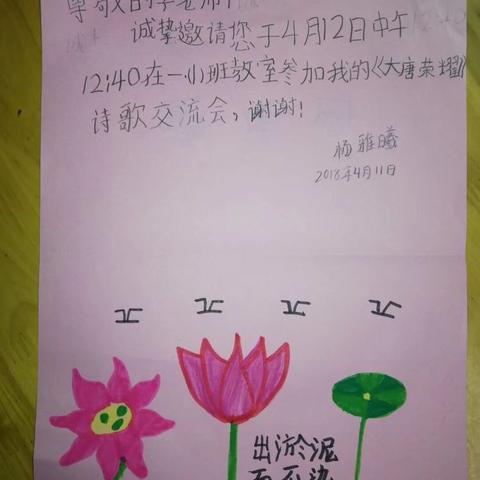 尊敬的李老师
诚挚邀请您于4月12日中午
12:40在一小班教室参加我的《大唐荣耀》
诗歌交流会，谢谢！
杨雅曦
2018年4月11日
出淤泥
而不染